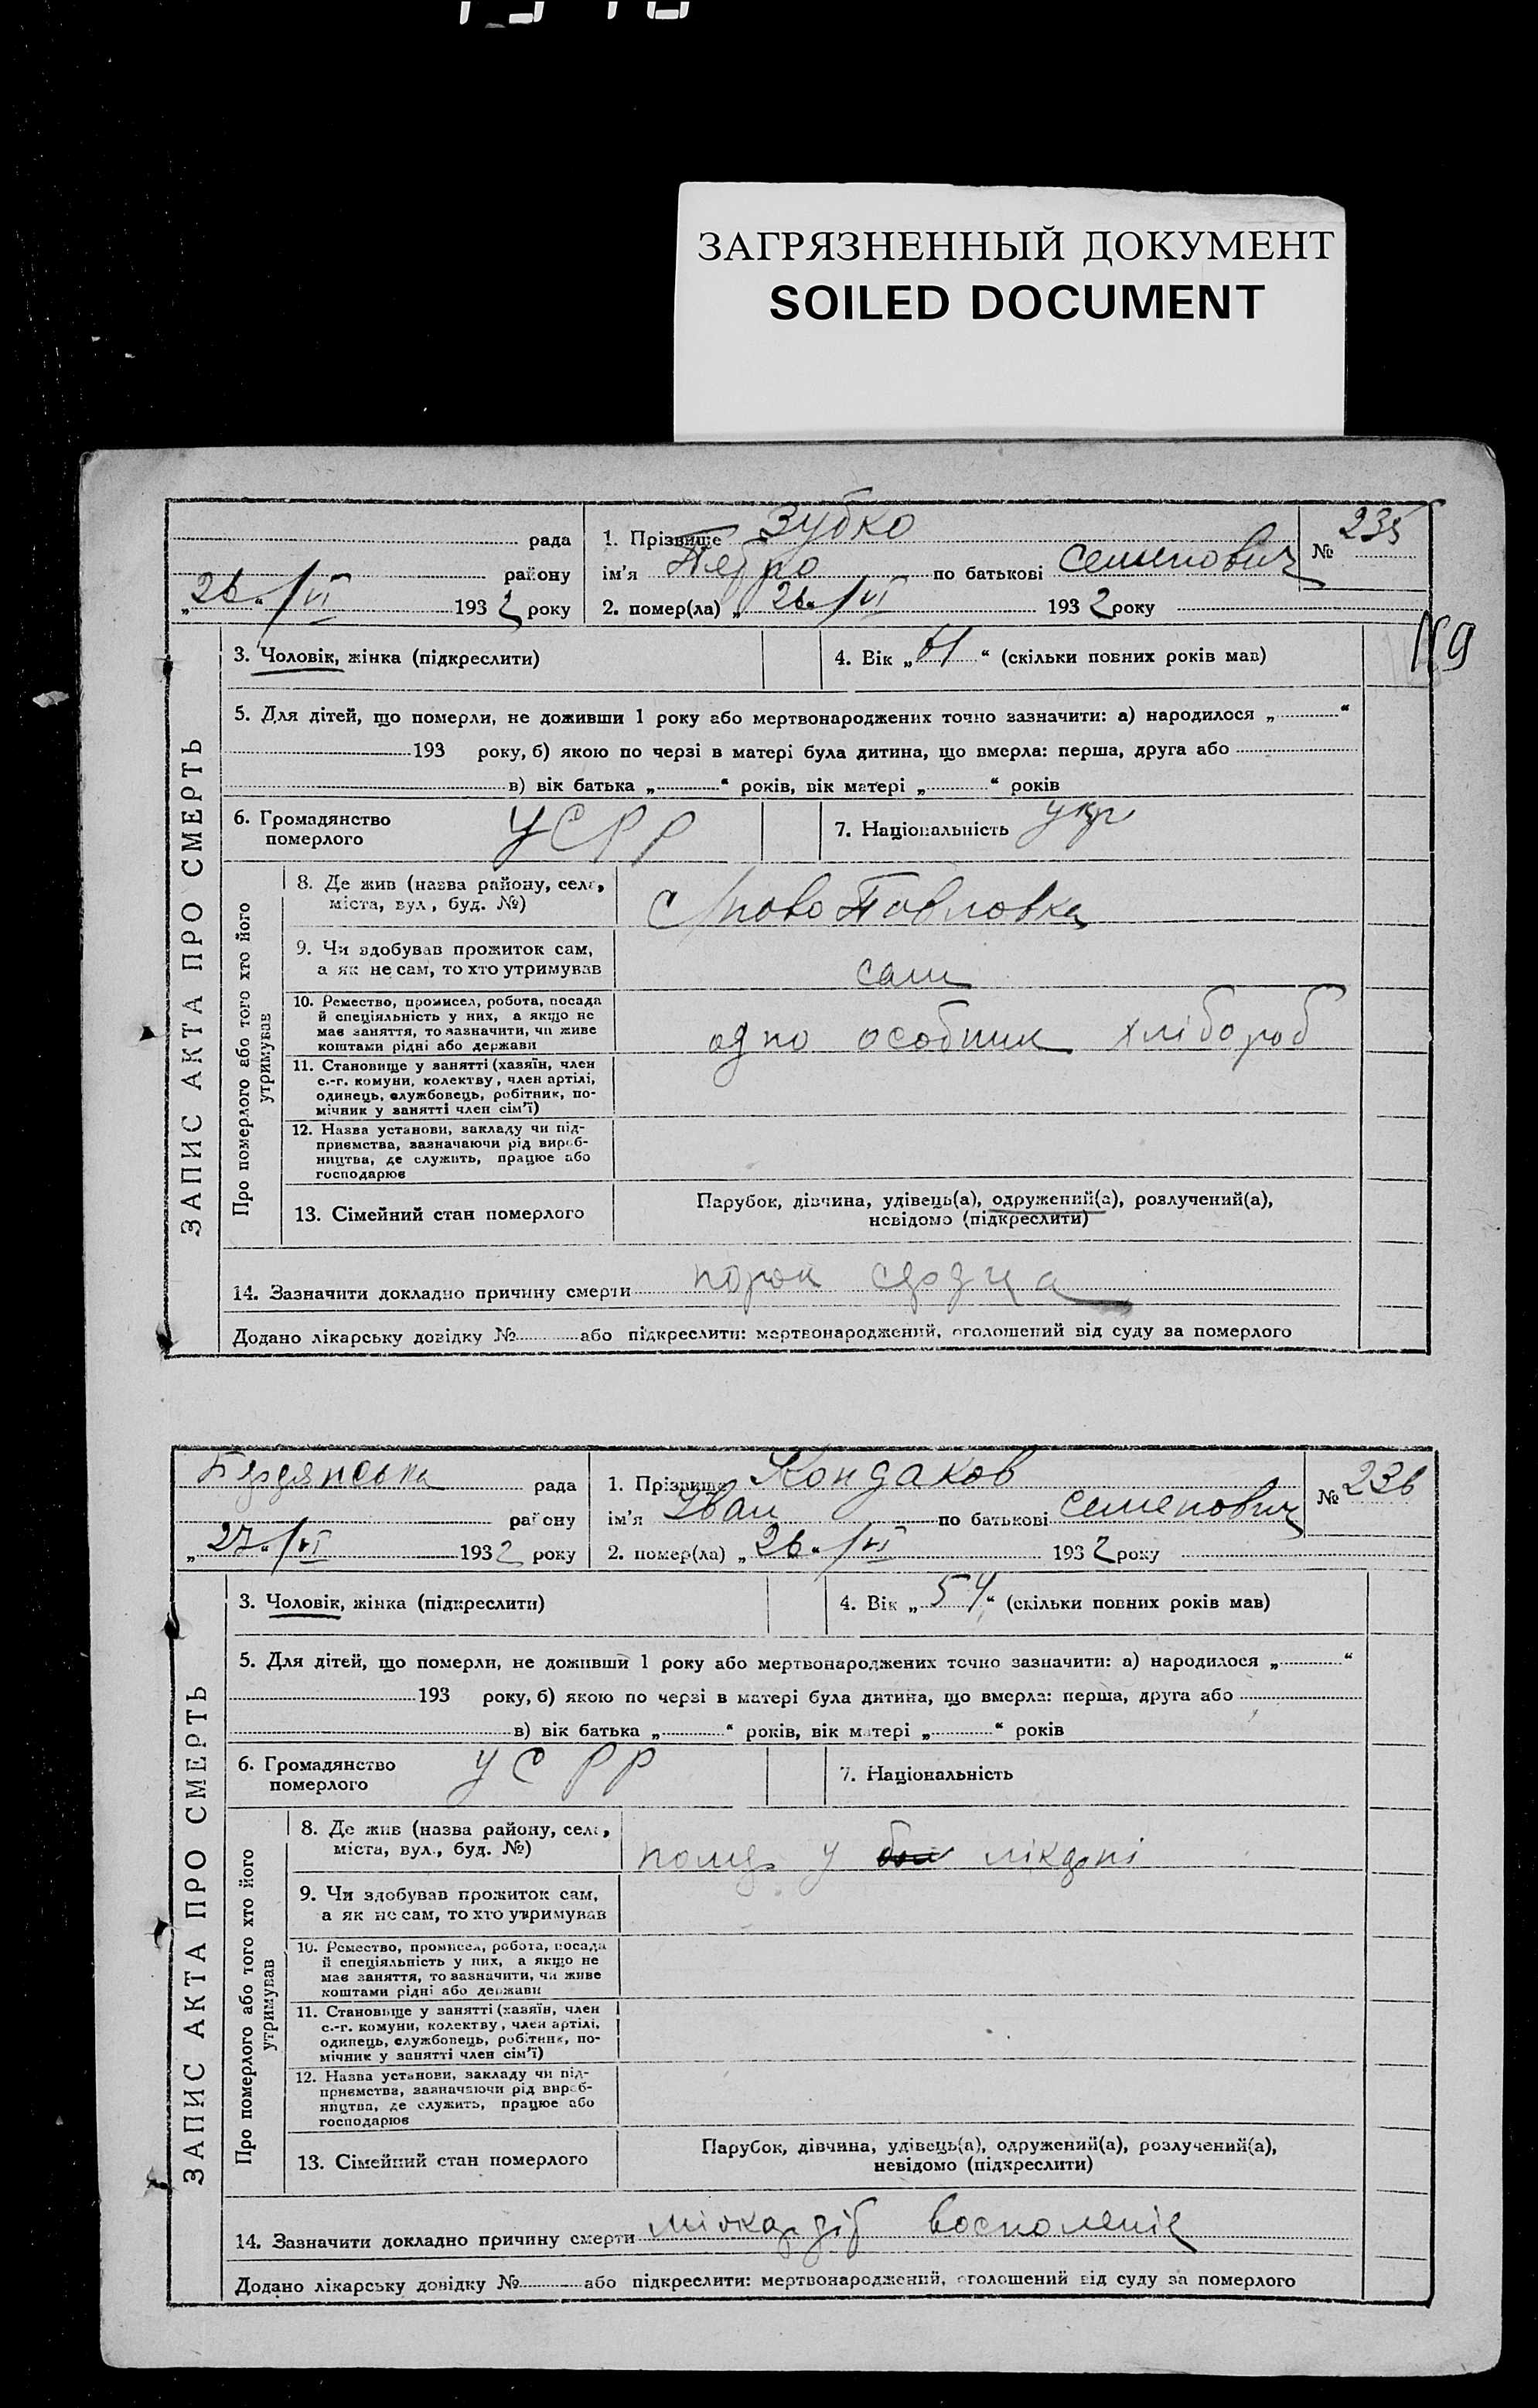 ЗАГРЯЗНЕННЫЙ ДОКУМЕНТ
SOILED DOCUMENT
рада
району
„26“/VI 1932 року
1. Прізвище Зубко
ім'я Петро по батькові Семенович
2. помер(ла) „26“/VI 1932 року
№ 235
119
ЗАПИС АКТА ПРО СМЕРТЬ
3. Чоловік, жінка (підкреслити)
4. Вік „61“ (скільки повних років мав)
5. Для дітей, що померли, не доживши 1 року або мертвонароджених точно зазначити: а) народилося „ “
193 року, б) якою по черзі в матері була дитина, що вмерла: перша, друга або
в) вік батька „ “ років, вік матері „ “ років
6. Громадянство
померлого УСРР
7. Національність укр
Про померлого або того хто його
утримував
8. Де жив (назва району, села,
міста, вул., буд. №)
с Ново Повловка
9. Чи здобував прожиток сам,
а як не сам, то хто утримував
сам
10. Ремество, промисел, робота, посада
й спеціяльність у них, а якщо не
має заняття, то зазначити, чи живе
коштами рідні або держави
одно особник хлібороб
11. Становище у занятті (хазяїн, член
с.-г. комуни, колектву, член артілі,
одинець, службовець, робітник, по-
мічник у занятті член сім'ї)
12. Назва установи, закладу чи під-
приємства, зазначаючи рід вироб-
ництва, де служить, працює або
господарює
13. Сімейний стан померлого
Парубок, дівчина, удівець(а), одружений(а), розлучений(а),
невідомо (підкреслити)
14. Зазначити докладно причину смерти порок сердца
Додано лікарську довідку № або підкреслити: мертвонароджений, оголошений від суду за померлого
Бердянська рада
району
„27“/VI 1932 року
1. Прізвище Кондаков
ім'я Іван по батькові Семенович
2. помер(ла) „26“/VI 1932 року
№ 236
ЗАПИС АКТА ПРО СМЕРТЬ
3. Чоловік, жінка (підкреслити)
4. Вік „54“ (скільки повних років мав)
5. Для дітей, що померли, не доживши 1 року або мертвонароджених точно зазначити: а) народилося „ “
193 року, б) якою по черзі в матері була дитина, що вмерла: перша, друга або
в) вік батька „ “ років, вік матері „ “ років
6. Громадянство
померлого УСРР
7. Національність
Про померлого або того хто його
утримував
8. Де жив (назва району, села,
міста, вул., буд. №)
помер у лікарні
9. Чи здобував прожиток сам,
а як не сам, то хто утримував
10. Ремество, промисел, робота, посада
й спеціяльність у них, а якщо не
має заняття, то зазначити, чи живе
коштами рідні або держави
11. Становище у занятті (хазяїн, член
с.-г. комуни, колектву, член артілі,
одинець, службовець, робітник, по-
мічник у занятті член сім'ї)
12. Назва установи, закладу чи під-
приємства, зазначаючи рід вироб-
ництва, де служить, працює або
господарює
13. Сімейний стан померлого
Парубок, дівчина, удівець(а), одружений(а), розлучений(а),
невідомо (підкреслити)
14. Зазначити докладно причину смерти
Додано лікарську довідку № або підкреслити: мертвонароджений, оголошений від суду за померлого